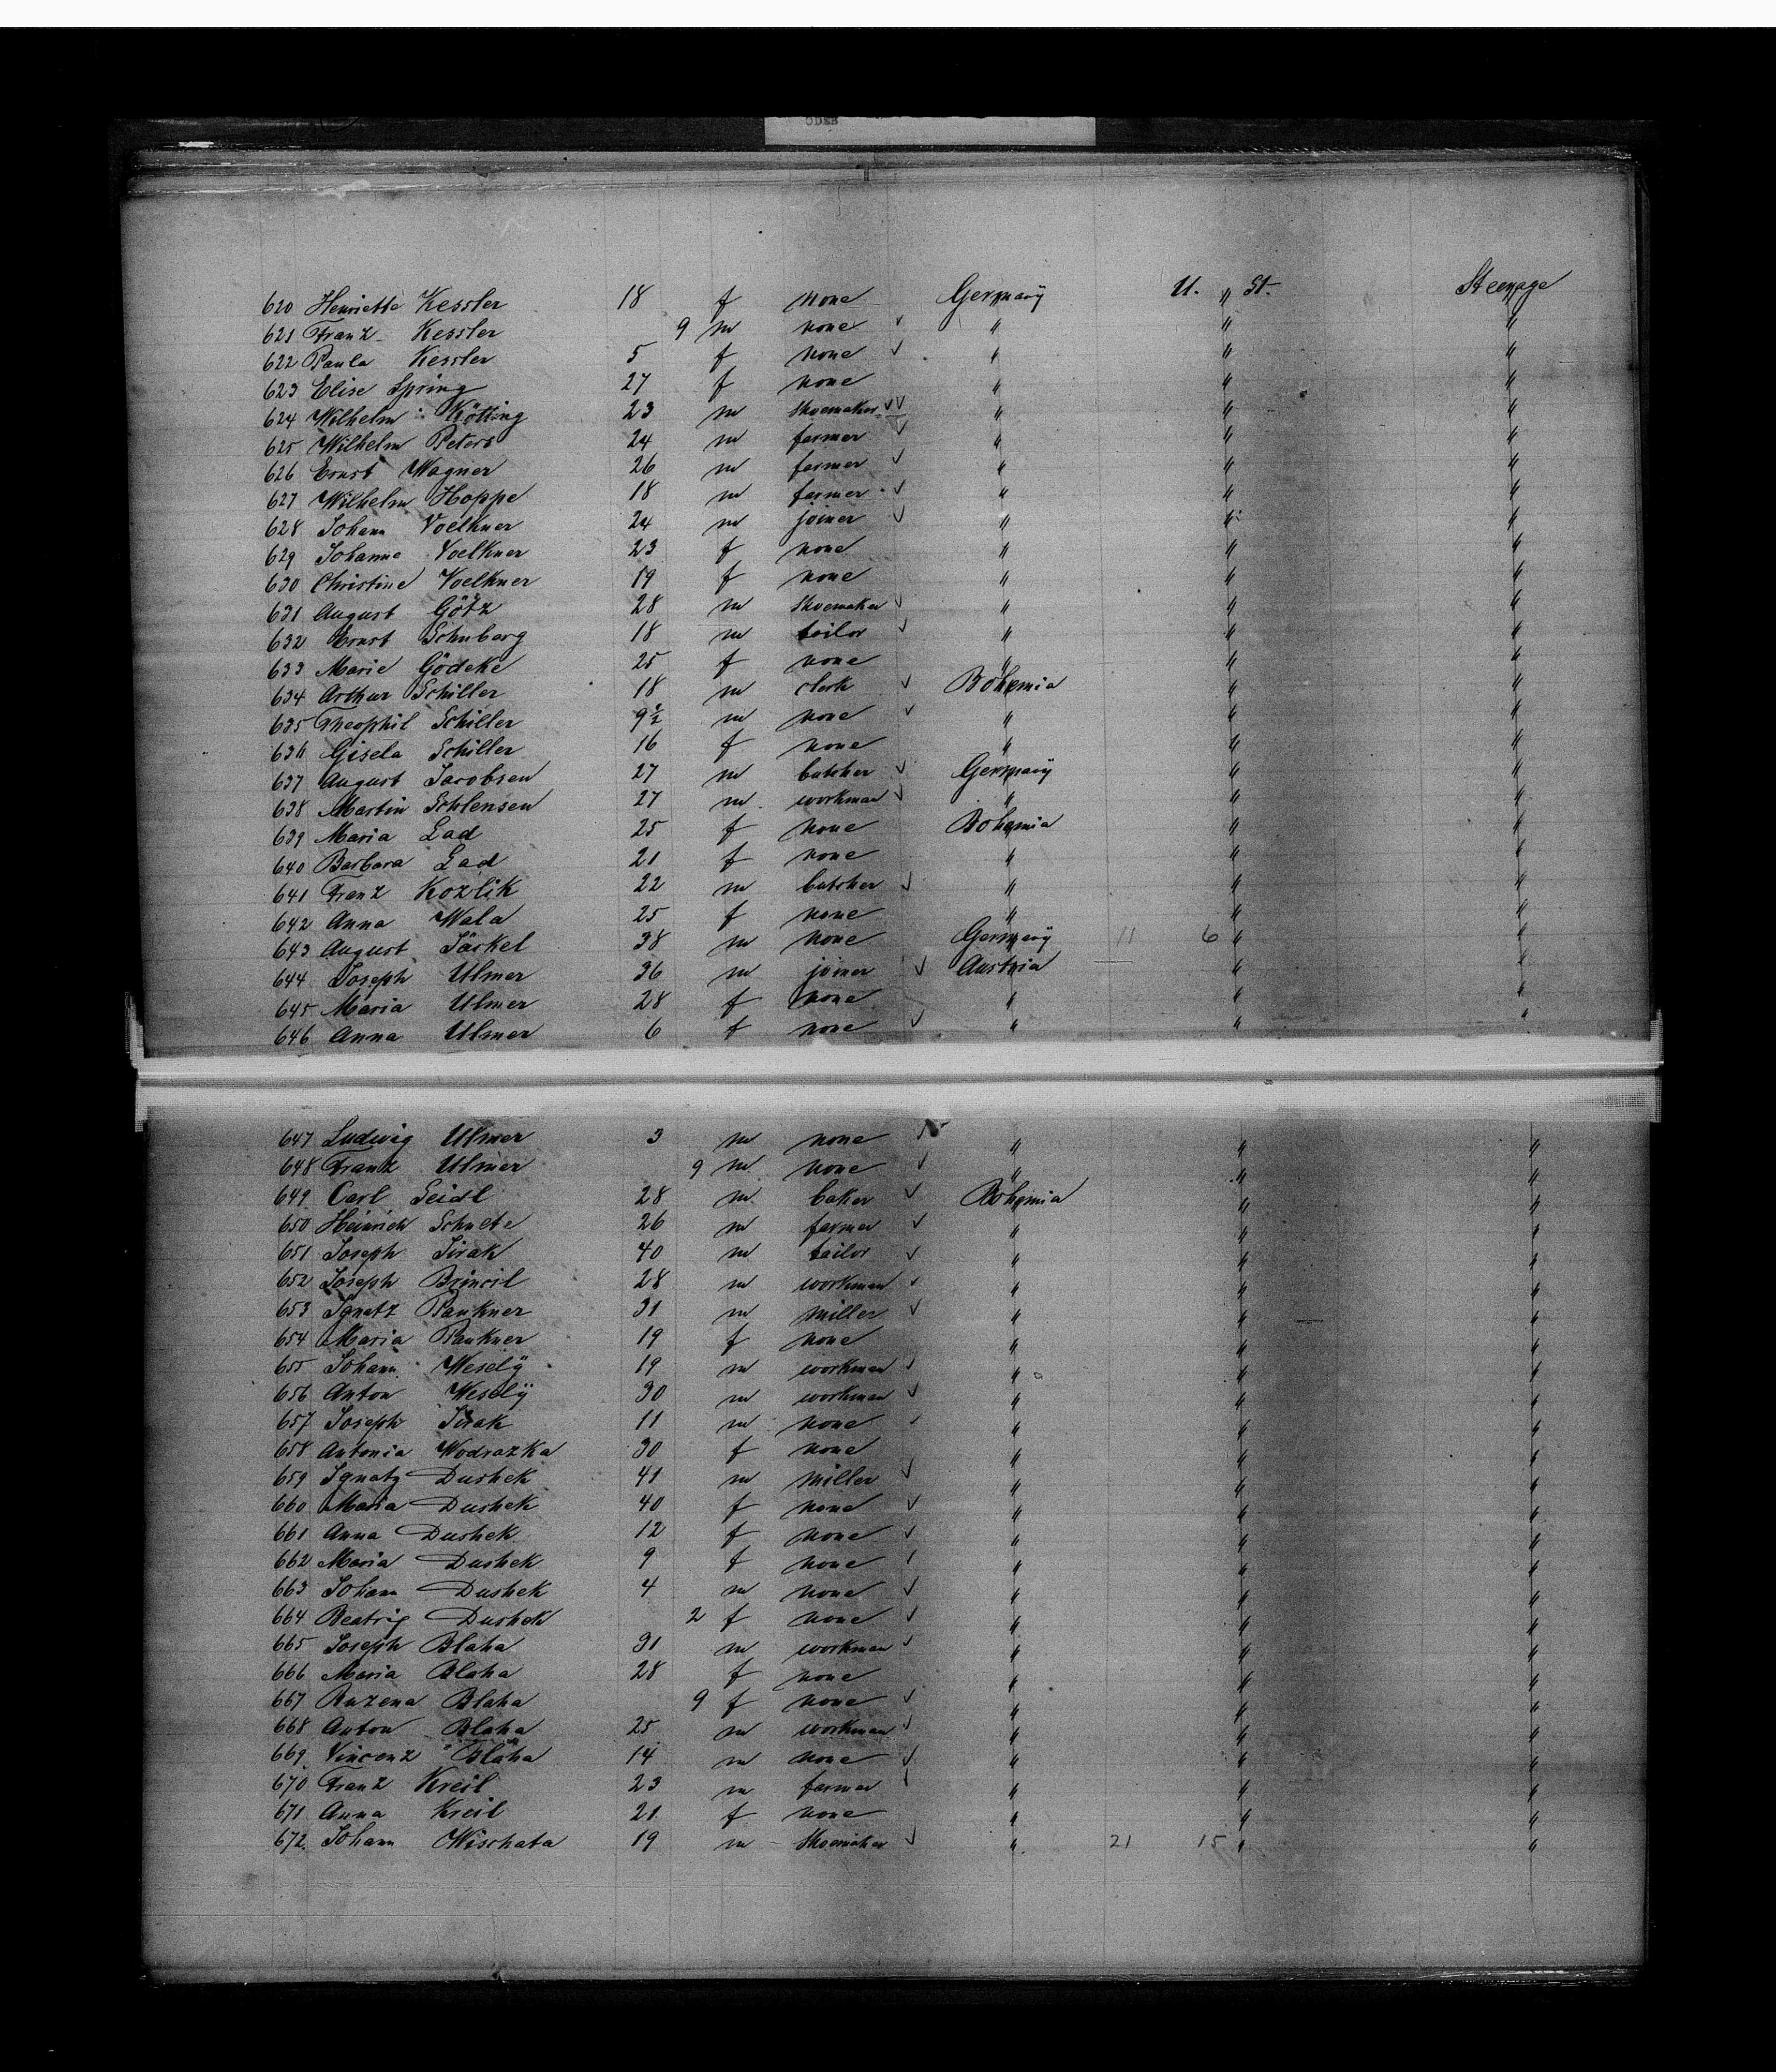 620 Henriette Kessler 18 f none Germany U. St. Steerage
621 Franz Kessler 9 m none " " "
622 Paula Kessler 5 f none " " "
623 Elise Spring 27 f none " " "
624 Wilhelm Kötting 23 m Shoemaker " " "
625 Wilhelm Peters 24 m farmer " " "
626 Ernst Wagner 26 m farmer " " "
627 Wilhelm Hoppe 18 m farmer " " "
628 Johann Voelkner 24 m joiner " " "
629 Johanne Voelkner 23 f none " " "
630 Christine Voelkner 19 f none " " "
631 August Götz 28 m Shoemaker " " "
632 Ernst Schuberg 18 m tailor " " "
633 Marie Gödeke 25 f none " " "
634 Arthur Schiller 18 m clerk Bohemia " "
635 Theophil Schiller 9½ m none " " "
636 Gisela Schiller 16 f none " " "
637 August Jacobsen 27 m butcher Germany " "
638 Martin Schlensen 27 m workman " " "
639 Maria Lad 25 f none Bohemia " "
640 Barbara Lad 21 f none " " "
641 Franz Kozlik 22 m butcher " " "
642 Anna Wala 25 f none " " "
643 August Järkel 38 m none Germany 11 6 " "
644 Joseph Ulmer 36 m joiner Austria " "
645 Maria Ulmer 28 f none " " "
646 Anna Ulmer 6 f none " " "
647 Ludwig Ulmer 3 m none " " "
648 Franz Ulmer 9 m none " " "
649 Carl Seidl 28 m baker Bohemia " "
650 Heinrich Schnete 26 m farmer " " "
651 Joseph Jirak 40 m tailor " " "
652 Joseph Brincil 28 m workman " " "
653 Ignatz Paukner 31 m miller " " "
654 Maria Paukner 19 f none " " "
655 Johann Weselÿ 19 m workman " " "
656 Anton Weselÿ 30 m workman " " "
657 Joseph Jirak 11 m none " " "
658 Antonia Wodrazka 30 f none " " "
659 Ignatz Dushek 41 m miller " " "
660 Maria Dushek 40 f none " " "
661 Anna Dushek 12 f none " " "
662 Maria Dushek 9 f none " " "
663 Johann Dushek 4 m none " " "
664 Beatrig Dushek 2 f none " " "
665 Joseph Blaha 31 m workman " " "
666 Maria Blaha 28 f none " " "
667 Ruzena Blaha 9 f none " " "
668 Anton Blaha 25 m workman " " "
669 Vincenz Blaha 14 m none " " "
670 Franz Kreil 23 m farmer " " "
671 Anna Kreil 21 f none " " "
672 Johann Wischata 19 m Shoemaker " 21 15 " "